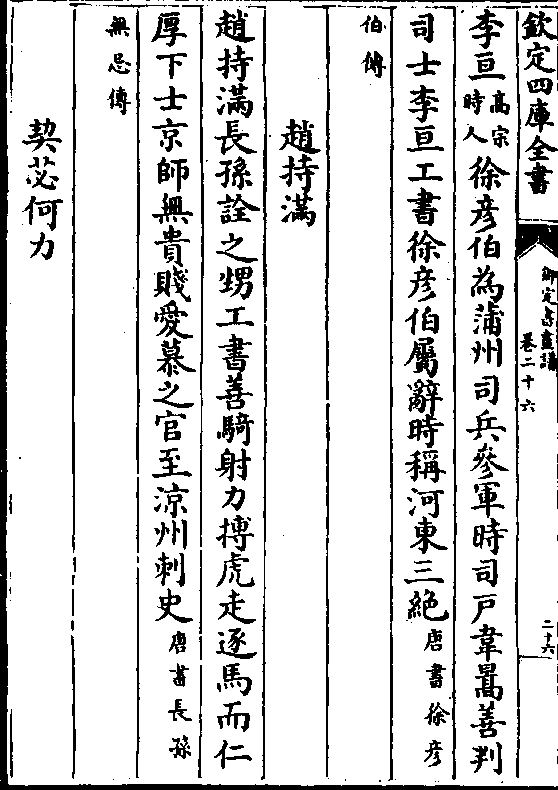 欽定四庫全書
御定書畫譜
卷二十六
二十六
李亘高宗時人徐彥伯為蒲州司兵參軍時司戶韋暠善判
司士李亘工書徐彥伯屬辭時稱河東三絶唐書徐彥
伯傳
趙持滿
趙持滿長孫詮之甥工書善騎射力搏虎走逐馬而仁
厚下士京師無貴賤愛慕之官至涼州刺史唐書長孫
無忌傳
契苾何力